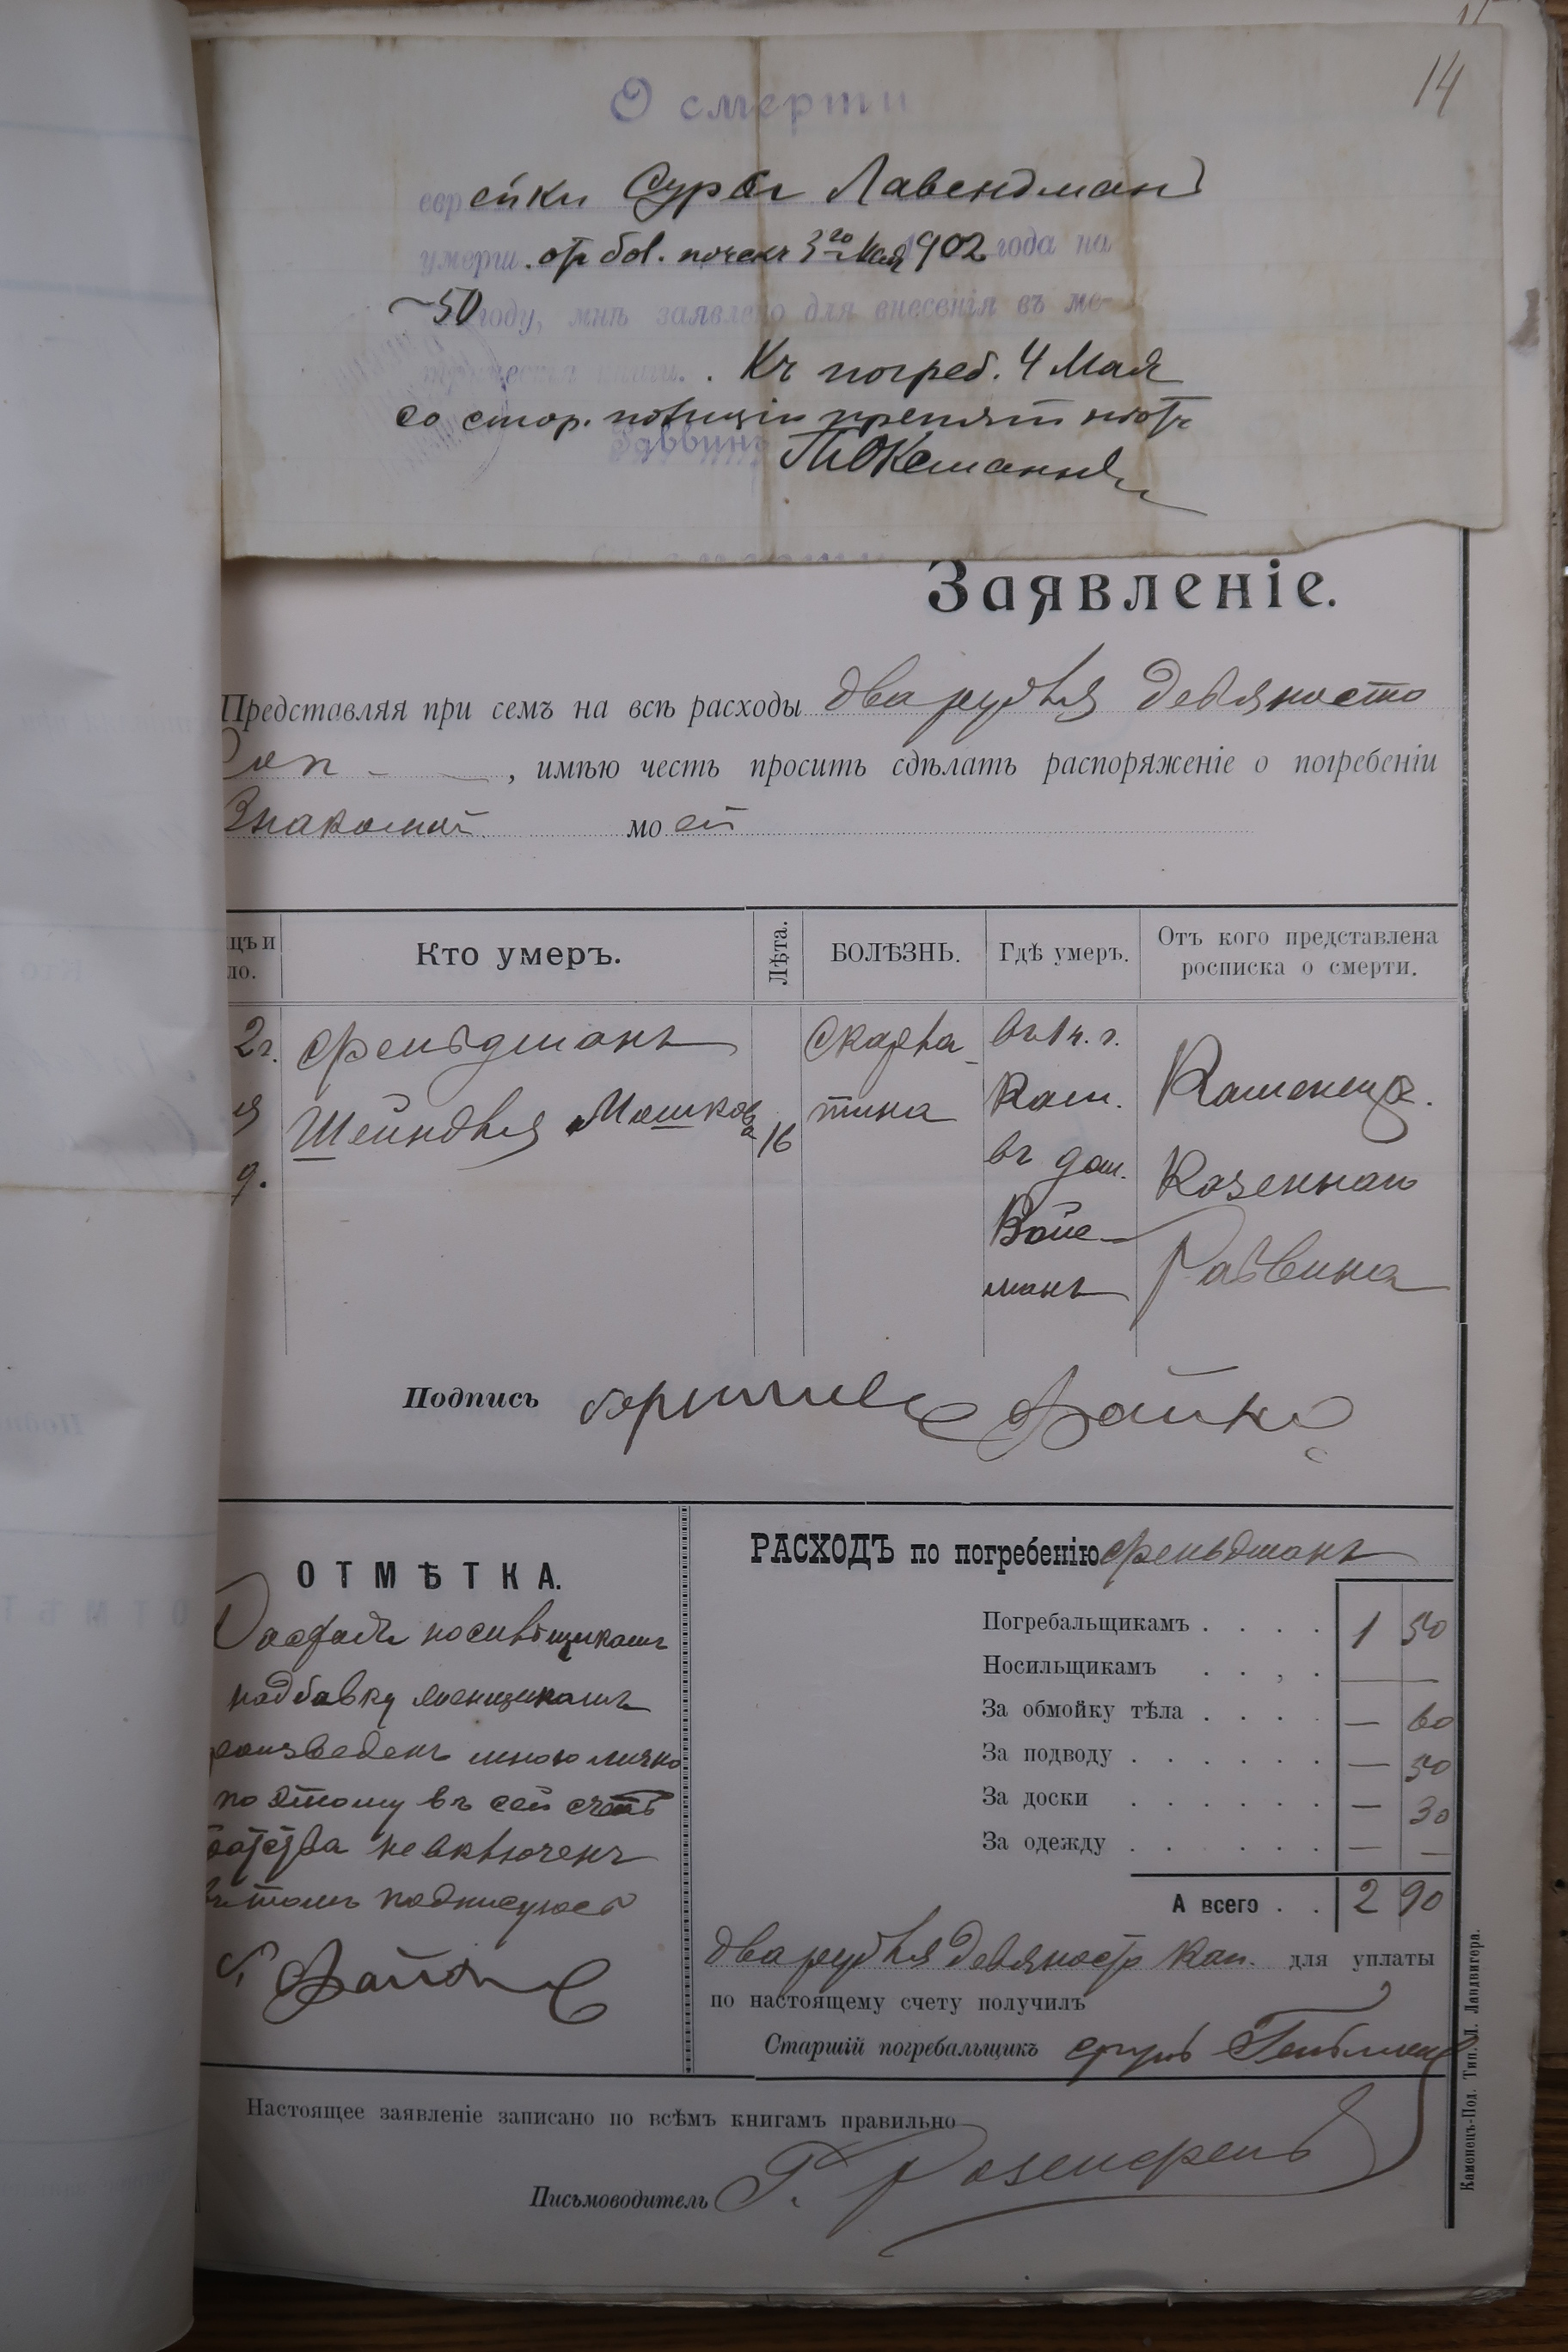 14
О смерти
еврейки Суры Лавендман
умерш. от бол. почекъ 3го Мая 1902 года на
50 году, мнѣ заявлено для внесенія въ ме-
трическія книги. Къ погреб. 4 Мая
со стор. полиціи препят. нѣтъ
Раввинъ
Заявленіе.
Представляя при семъ на всѣ расходы два рубля девяносто
коп , имѣю честь просить сдѣлать распоряженіе о погребеніи
Знакомой моей
цъ и
ло.
Кто умеръ.
Лѣта.
БОЛѢЗНЬ.
Гдѣ умеръ.
Отъ кого представлена
росписка о смерти.
2 г.
я
9.
Фельдманъ
Шейндля Мошкова
16
Скарла-
тина
въ 1 ч. г.
Кам.
въ дом.
Вайс-
манъ
Каменецк.
Казеннаго
Раввина
Подпись
ОТМѢТКА.
носильщикамъ
надбавку
произведенъ мною лично
по этому въ сей счетъ
не включенъ
въ томъ подписуюсь
РАСХОДЪ по погребенію Фельдманъ
Погребальщикамъ . . . . 1 50
Носильщикамъ . . , . — —
За обмойку тѣла . . . . — 60
За подводу . . . . . . — 50
За доски . . . . . . — 30
За одежду . . . . . . — —
А всего . . 2 90
два рубля девяносто коп. для уплаты
по настоящему счету получилъ
Старшій погребальщикъ
Настоящее заявленіе записано по всѣмъ книгамъ правильно
Письмоводитель Г. Розенфельд
Каменецъ-Под. Тип. Л. Ландвигера.